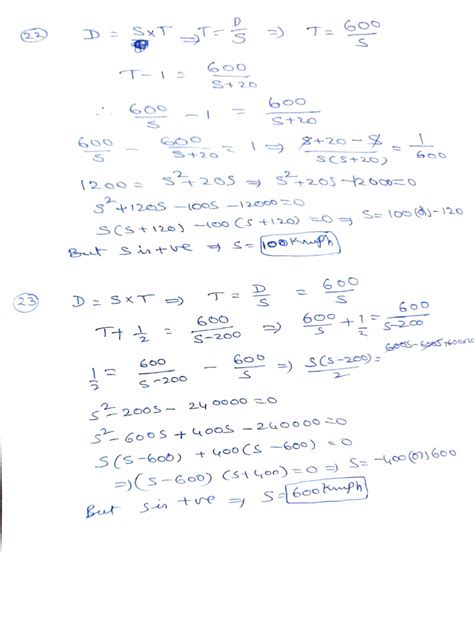 22) D = S×T ⇒ T = D/S ⇒ T = 600/S
T-1 = 600/S+20
∴ 600/S - 1 = 600/S+20
600/S - 600/S+20 = 1 ⇒ S+20-S/S(S+20) = 1/600
1200 = S²+20S ⇒ S²+20S-12000=0
S²+120S-100S-12000=0
S(S+120)-100(S+120)=0 ⇒ S=100(or)-120
But S is +ve ⇒ S= 100Kmph
23) D = S×T ⇒ T = D/S = 600/S
T+ 1/2 = 600/S-200 ⇒ 600/S + 1/2 = 600/S-200
1/2 = 600/S-200 - 600/S ⇒ S(S-200)/2 = 600S-600S+600×200
S²-200S-240000=0
S²-600S+400S-240000=0
S(S-600)+400(S-600)=0
⇒(S-600)(S+400)=0 ⇒ S=-400(or)600
But S is +ve ⇒ S= 600Kmph